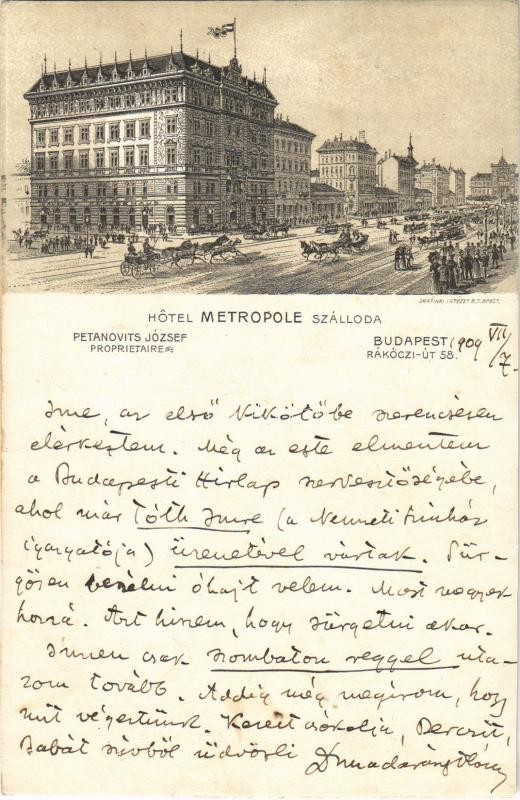 GRAFIKAI INTÉZET R.T. BPEST.
HÔTEL METROPOLE SZÁLLODA
PETANOVITS JÓZSEF
PROPRIETAIRE
BUDAPEST, 1909 VII/7.
RÁKÓCZI-ÚT 58.
Ime, az első kikötőbe szerencsésen
elérkeztem. Még az este elmentem
a Budapesti Hirlap szerkesztőségébe,
ahol már Tóth Imre (a Nemzeti Szinház
igazgatója) üzenetével vártak. Sür-
gősen beszélni óhajt velem. Most megyek
hozzá. Azt hiszem, hogy sürgetni akar.
Innen csak szombaton reggel uta-
zom tovább. Addig még megirom, hogy
mit végeztünk. Kezeit csókolja,
szivből üdvözli